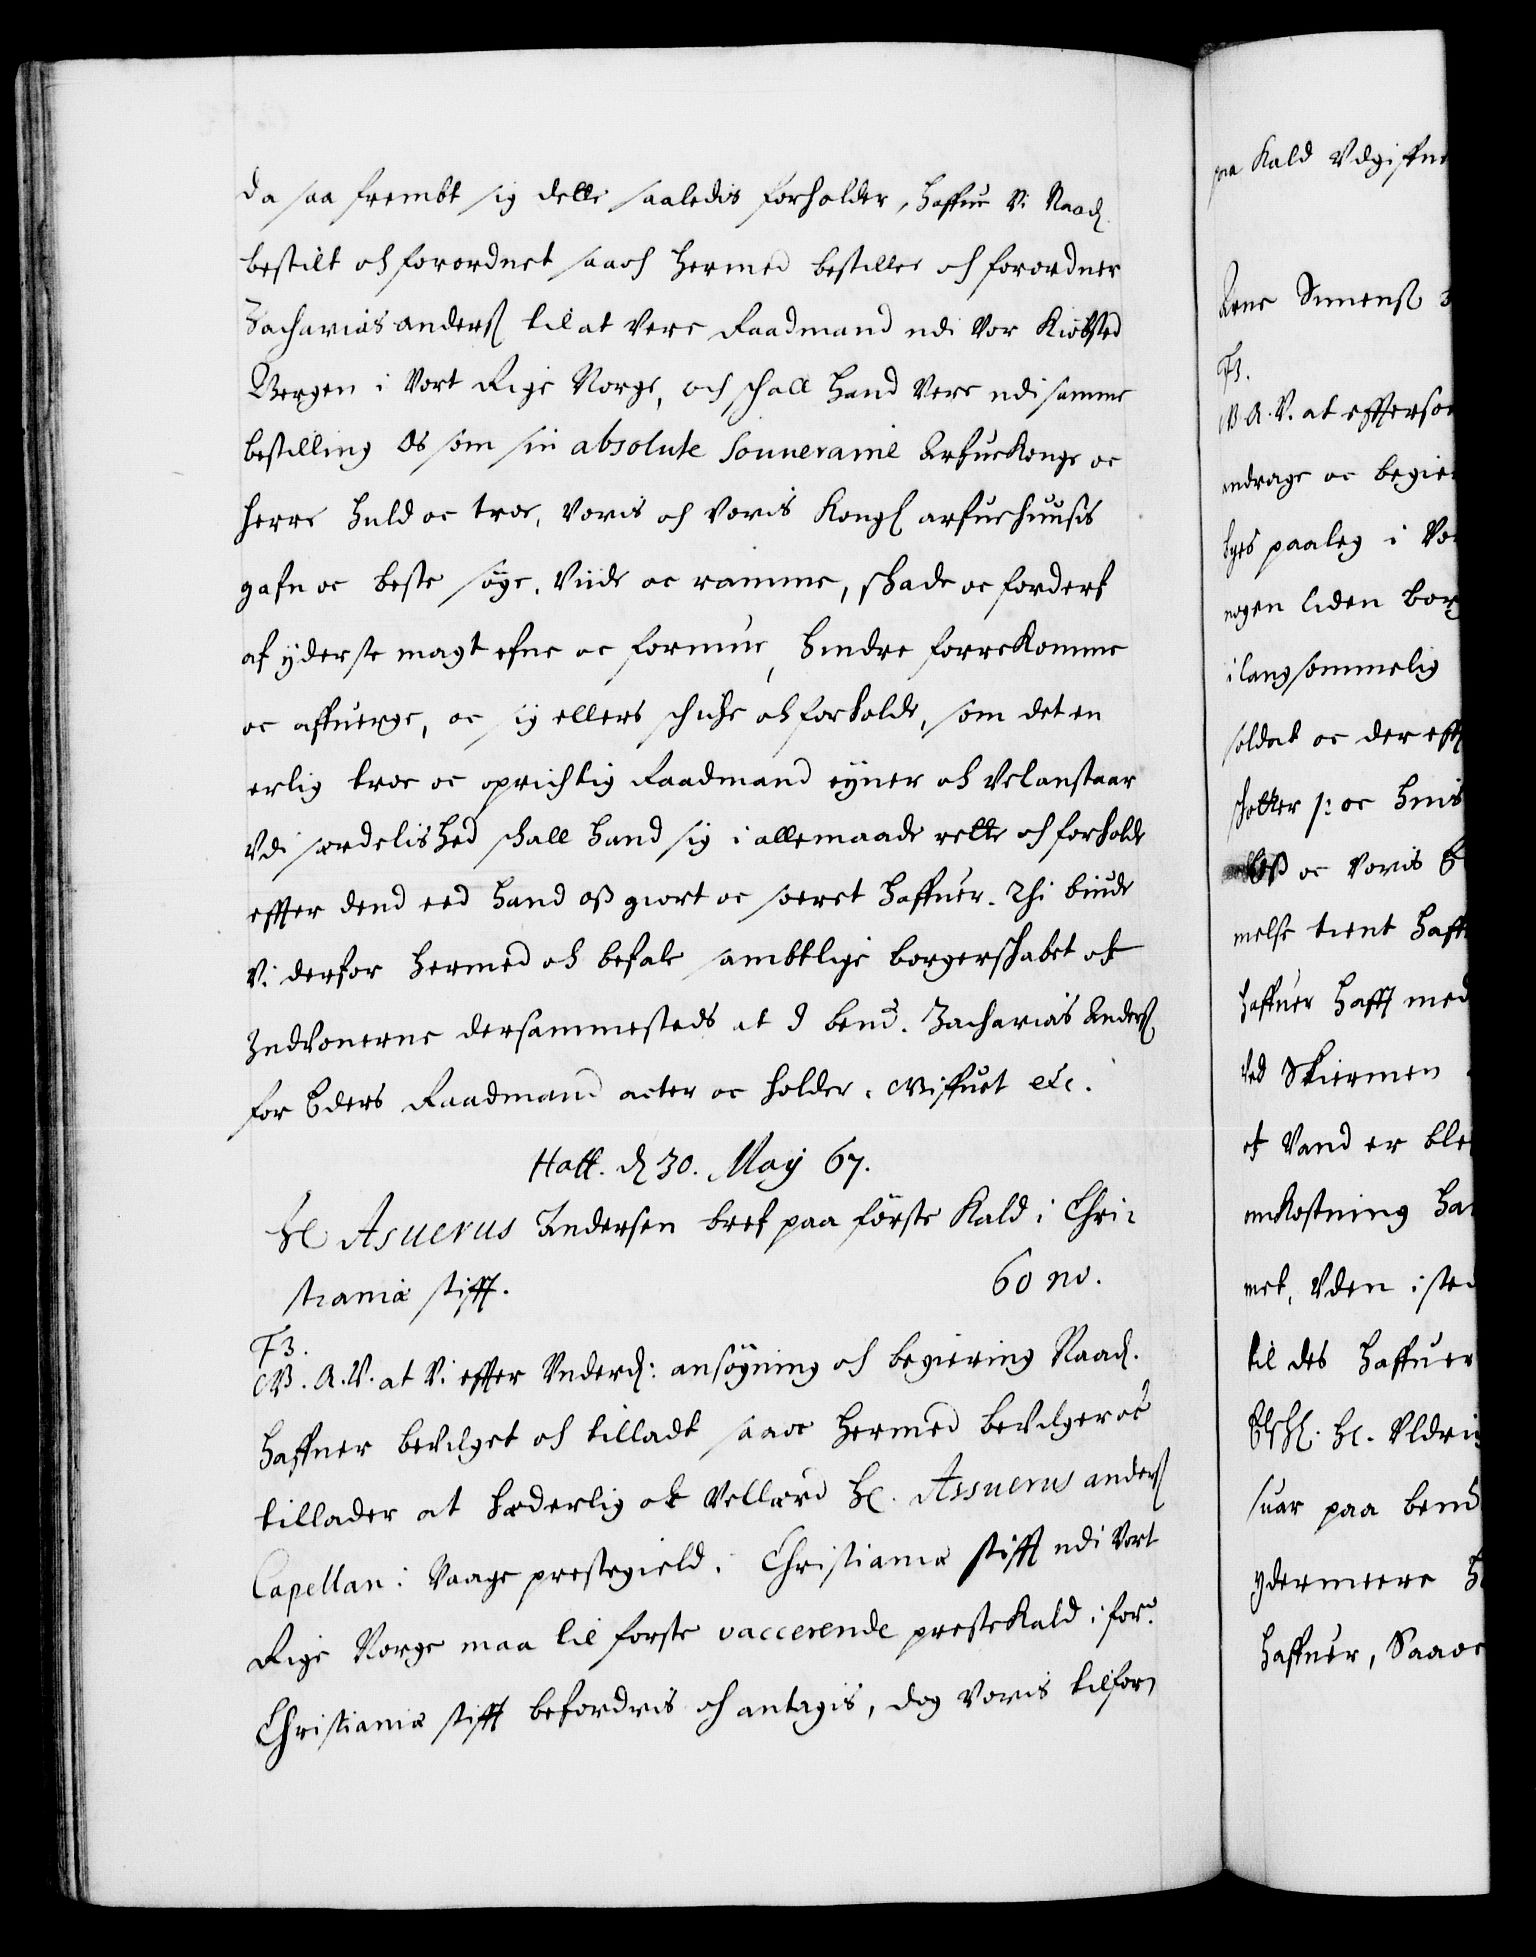 da saa frembt sig dette saaledis forholder, haffuer Vi Naad.
bestilt och forordnet saa och hermed bestiller och forordner
Zacharias anders til at vere Raadmand udi vor Kiøbsted
Bergen i vort Rige Norge, och schall hand vere udi samme
bestilling Os som sin absolute souveraine Arfue Konge oc
herre huld oc troe, voris och voris Kongl arfuehuusis
gafn oc beste søge, viide oc ramme, schade oc forderf
af yderste magt efne oc formue, hindre forrekomme
oc affuerge, oc sig ellers schiche och forholde, som det en
erlig troe oc oprichtig Raadmand eyner och velanstaar
Udi serdelished schall hand sig i allemaade rette och forholde
effter dend eed hand oss giort oc soeret haffuer. Thi biude
Vi derfor hermed och befale sambtlige borgerschabet och
Indvonerne dersammesteds at I bemd. Zacharias Anders
for Eders Raadmand acter oc holder. Giffuet etc.
Haff. d 30. May 67.
Hr Asuerus Andersen bref paa første Kald i Chri-
stianiæ stifft. 60 no.
F3.
G. A. V. at Vi effter Underd: ansøgning och begiering Naad.
haffuer bevilget och tilladt saa oc hermed bevilger oc
tillader at hæderlig oc vellærd Hr. Assuerus anders
Capellan i Vaage prestegield i Christianiæ stifft udi vort
Rige Norge maa til første vaccerende prestekald i ford
Christianiæ stifft befordris och antagis, dog voris tilforn
paa Kald Udgiffue
Arne Simenss
F3.
G. A. V. at effterso
andrage oc begie
byes paaleg i Vo
nogen liden bor
i langsommelig
soldat oc der eff
schotter p: oc huis
Oss oc voris
melse tient haff
haffuer hafft med
ved
af Vand er ble
omkostning ha
met, Uden i sted
til des haffuer
Elschl. Hr. Uldri
suar paa bemd
ydermeere h
haffuer, Saa oc